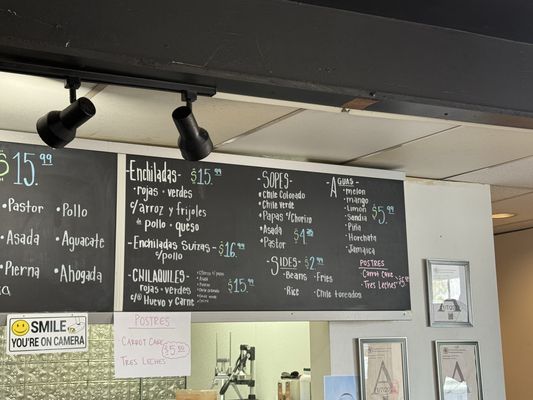 $15.99
•Pastor •Pollo
•Asada •Aguacate
•Pierna •Ahogada
Enchiladas- $15.99
•rojas •verdes
c/arroz y frijoles
•pollo •queso
-Enchiladas Suizas $16.99
c/pollo
-CHILAQUILES-
•rojas •verdes $15.99
c/Huevo y Carne
-SOPES-
•Chile Colorado
•Chile Verde
•Papas c/Chorizo
•Asada $4.25
•Pastor
-SIDES- $2.99
•Beans •Fries
•Rice •Chile toreados
-AGUAS-
•melon
•mango
•Limon $5.99
•Sandia
•Piña
•Horchata
•Jamaica
POSTRES
•Carrot Cake $5.99
•Tres Leches
SMILE
YOU'RE ON CAMERA
POSTRES
CARROT CAKE $5.99
TRES LECHES